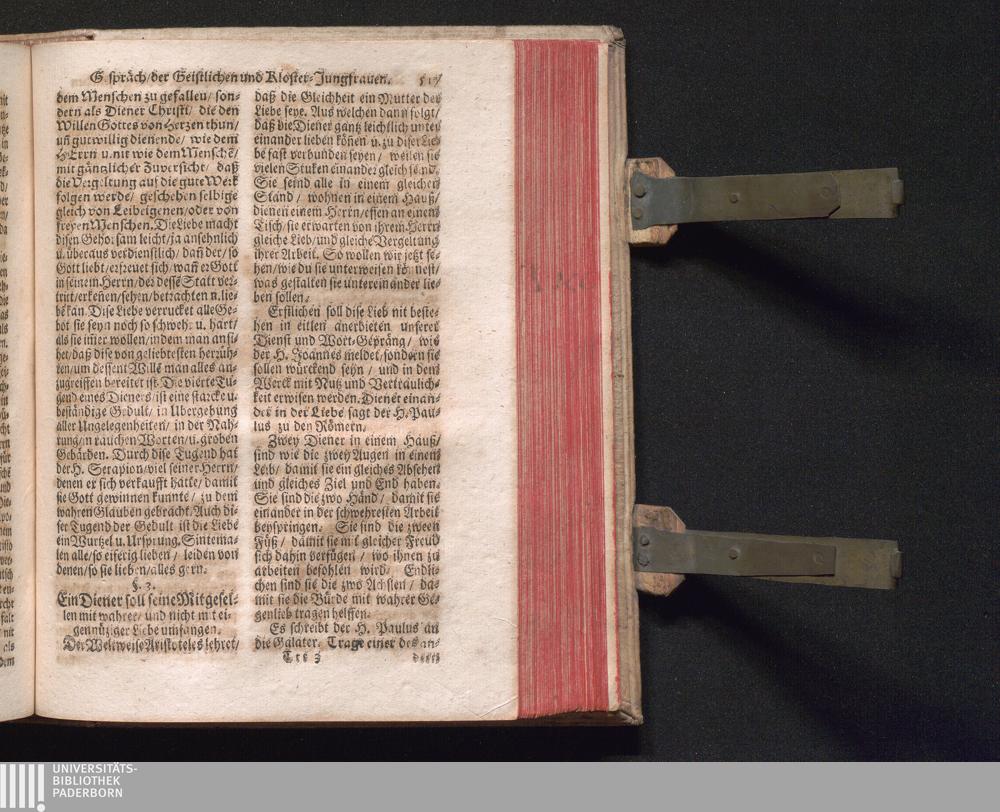 Gespräch/der Geistlichen und Kloster-Jungfrauen. 517
dem Menschen zu gefallen/ son-
dern als Diener Christi/ die den
Willen Gottes von Herzen thun/
uñ gutwillig dienende/ wie dem
HErrn u. nit wie dem Menschē/
mit gäntzlicher Zuversicht/ daß
die Vergeltung auf die gute Werk
folgen werde/ geschehen selbige
gleich von Leibeigenen/oder von
freyen Menschen. Die Liebe macht
disen Gehorsam leicht/ja ansehnlich
u. überaus verdienstlich/ dañ der/ so
Gott liebt/erfreuet sich/wañ er Gott
in seinem Herrn/der dessē Statt ver-
tritt/erkeñen/sehen/betrachten u. lie-
bē kan. Dise Liebe verrucket alle Ge-
bot sie seyn noch so schwehr u. hart/
als sie im̃er wollen/indem man ansi-
het/daß dise von geliebtesten herzüh-
ren/um dessent Willē man alles an-
zugreiffen bereitet ist. Die vierte Tu-
gend eines Dieners/ist eine starcke u.
beständige Gedult/ in Ubergebung
aller Ungelegenheiten/ in der Nah-
rung/in rauchen Worten/u. groben
Gebärden. Durch dise Tugend hat
der H. Serapion/viel seiner Herrn/
denen er sich verkaufft hätte/damit
sie Gott gewinnen kunnte/ zu dem
wahren Glauben gebracht. Auch di-
ser Tugend der Gedult ist die Liebe
ein Wurtzel u. Ursprung. Sintema-
len alle/so eiferig lieben/ leiden von
denen/so sie lieben/alles gern.
§. 3.
Ein Diener soll seine Mitgesel-
len mit wahrer/ und nicht mit ei-
gennüziger Liebe umfangen.
Der Weltweise Aristoteles lehret/
daß die Gleichheit ein Mutter der
Liebe seye. Aus welchen dann folgt/
daß die Diener gantz leichtlich unter
einander lieben köñen u. zu diser Lie-
be fast verbunden seyen/ weilen sie
vielen Stuken einander gleich seind.
Sie seind alle in einem gleichen
Stand/ wohnen in einem Hauß/
dienen einem Herrn/essen an einem
Tisch/sie erwarten von ihrem Herrn
gleiche Lieb/und gleiche Vergeltung
ihrer Arbeit. So wollen wir jetzt se-
hen/wie du sie unterweisen könnest/
was gestalten sie untereinander lie-
ben sollen.
Erstlichen soll dise Lieb nit beste-
hen in eitlen anerbieten unserer
Dienst und Wort-Gepräng/ wie
der H. Joannes meldet/sondern sie
sollen würckend seyn/ und in dem
Werck mit Nutz und Vertraulich-
keit erwisen werden. Dienet einan-
der in der Liebe sagt der H. Pau-
lus zu den Römern.
Zwey Diener in einem Hauß/
sind wie die zwey Augen in einem
Leib/ damit sie ein gleiches Absehen
und gleiches Ziel und End haben.
Sie sind die zwo Händ/ damit sie
einander in der schwehresten Arbeit
beyspringen. Sie sind die zween
Füß/ damit sie mit gleicher Freud
sich dahin verfügen/ wo ihnen zu
arbeiten befohlen wird/ Endli-
chen sind sie die zwo Achslen/ da-
mit sie die Bürde mit wahrer Ge-
genlieb tragen helffen.
Es schreibt der H. Paulus an
die Galater: Trage einer des an-
Ttt 3
dern
UNIVERSITÄTS-
BIBLIOTHEK
PADERBORN